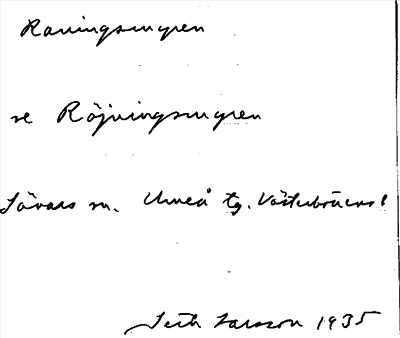 Raningsmyren
se Röjningsmyren
Sävars sn. Umeå tg. Västerbottens l
Seth Larsson 1935